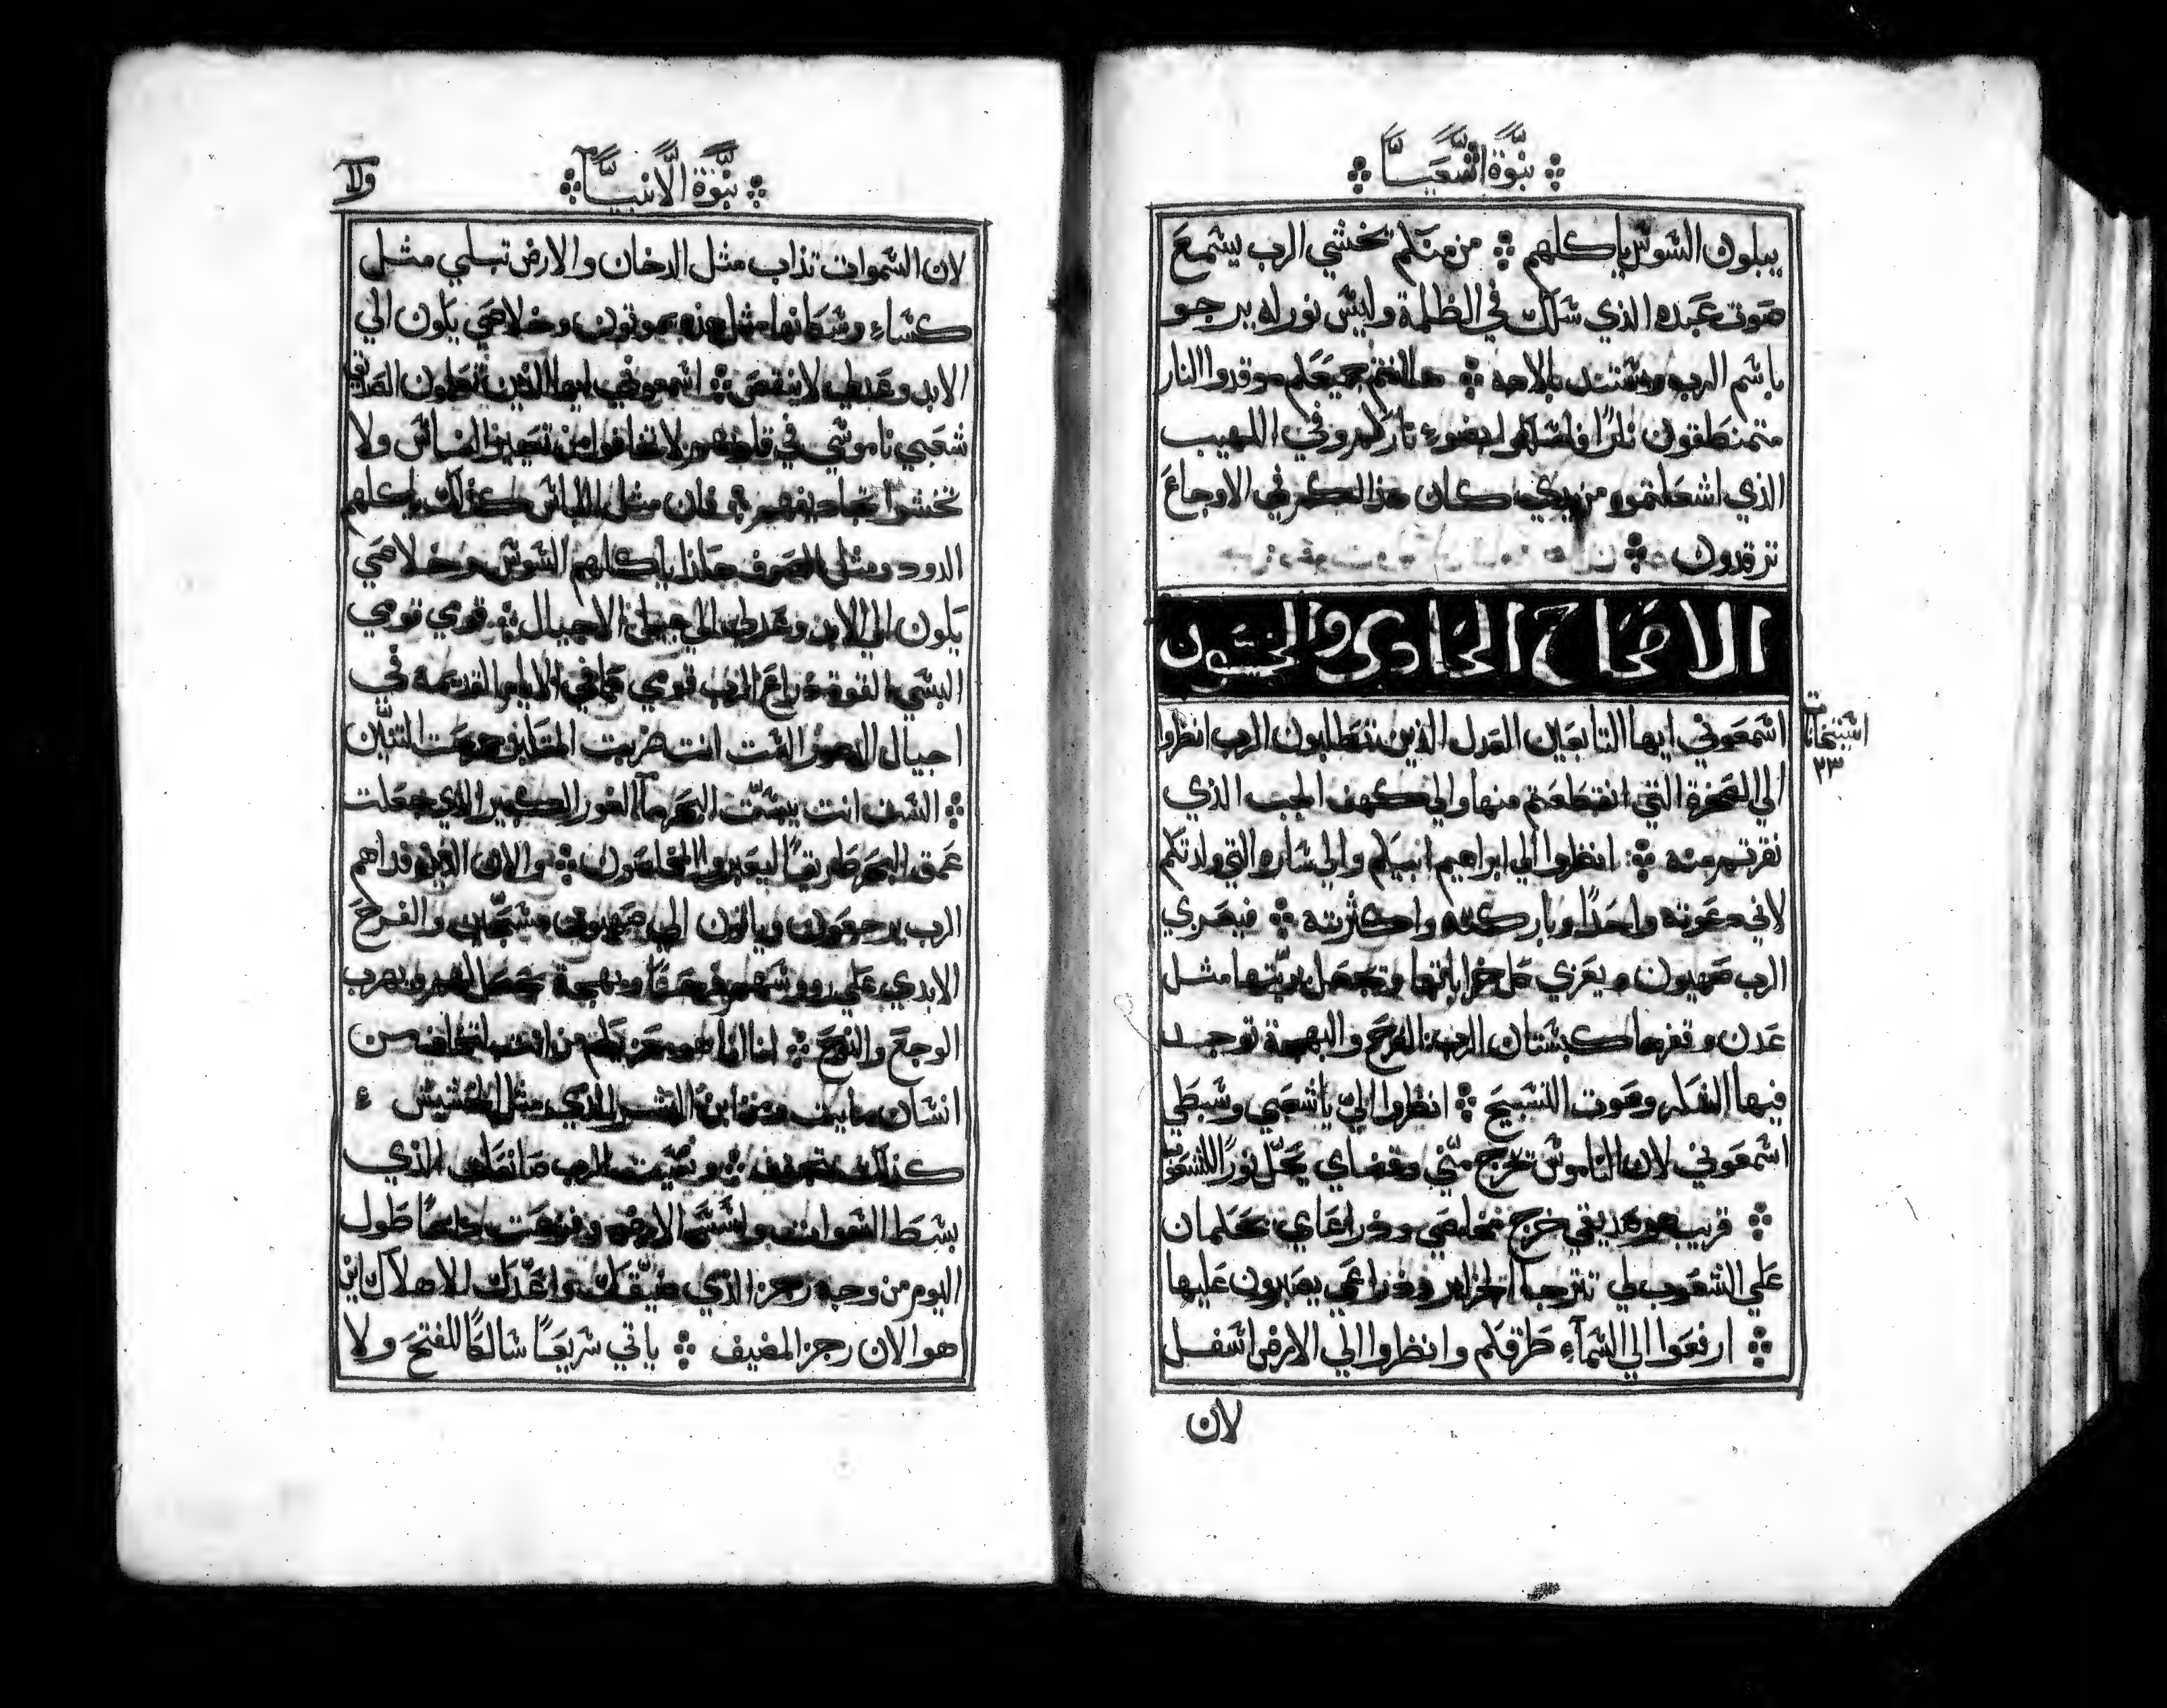 نبوة اشعيا
يبلون السوس ياكلهم من منكم تخشي الرب يسمع
صوت عبده الذي سلك في الظلمة وليس نور له يرجو
باسم الرب ويستند بالاهه ها انتم جميعكم موقدوا النار
متمنطقون نارًا فاسلكوا بضوء ناركم وفي اللهيب
الذي اشعلتموه من يدي كان هذا لكم في الاوجاع
ترقدون
الاصحاح الحادي والخمسون
اسمعوني ايها التابعين العدل الذين تتطلبون الرب انظروا
استنحانات
٢٣
الي الصخرة التي انقطعتم منها والي كهف الجب الذي
نقرتم منه انظروا الي ابراهيم ابيكم والي ساره التي ولدتكم
لاني دعوته واحدًا وباركته واكثرته فيعزي
الرب صهيون ويعزي كل خراباتها وتجعل بريتها مثل
عدن وقفرها كبستان الرب الفرح والبهجة توجد
فيها الشكر وصوت التسبيح انظروا اليّ يا شعبي وسبطي
اسمعوني لان الناموس تخرج منّي وقضاي يحلّ نورًا للشعوب
قريب هو صديقي خرج مخلصي وذراعاي تحكمان
علي الشعوب لي تترجا الجزاير وذراعي يصبرون عليها
ارفعوا الي السمآء طرفكم وانظروا الي الارض اسفل
لان
نبوة الانبيآ
لان السموات تذاب مثل الدخان والارض تبلي مثل
كساء وسكانها مثل هذه يموتون وخلاصي يكون الي
الابد وعدلي لا ينقص اسمعوني ايها الذين تعلمون الصدق
شعبي ناموسي في قلوبهم لا تخافوا من تعيير الناس ولا
تخشوا تجاديفهم فان مثل اللباس كذلك ياكلهم
الدود ومثل الصوف هكذا ياكلهم السوس وخلاصي
يكون الي الابد وعدلي الي جيل الاجيال قومي قومي
البسي القوة ذراع الرب قومي كما في الايام القديمة في
اجيال الدهور الست انت ضربت المتكبر جرحت التنّين
الست انت يبسّت البحر مآ الغور الكبير الذي جعلت
عمق البحر طريقًا ليعبروا المخلصون والان الذين فداهم
الرب يرجعون وياتون الي صهيون مسبّحين والفرح
الابدي علي رووسهم فرحًا وبهجة يهرب
الوجع والنوح انا انا هو معزيكم من انت لتخاف من
انسان مايت ومن ابن البشر الذي مثل الحشيش
كذلك يجف ونسيت الرب صانعك الذي
بسط السموات واسّس الارض وفزعت دايمًا طول
اليوم من وجه رجز الذي ضيّقك واعدّك للاهلاك اين
هو الان رجز المضيف ياتي سريعًا سالكًا للفتح ولا